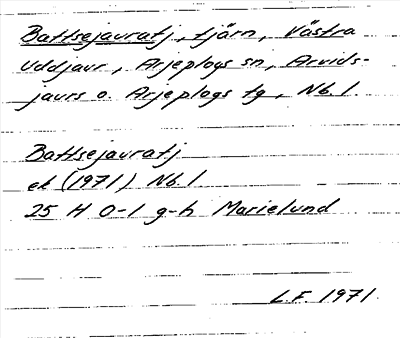 Battsejauratj, tjärn, Västra
Uddjaur, Arjeplogs sn, Arvids-
jaurs o. Arjeplogs tg, Nb. l.
Battsejauratj
ek (1971) Nb. l
25 H 0-1 g-h Marielund
L.F. 1971.